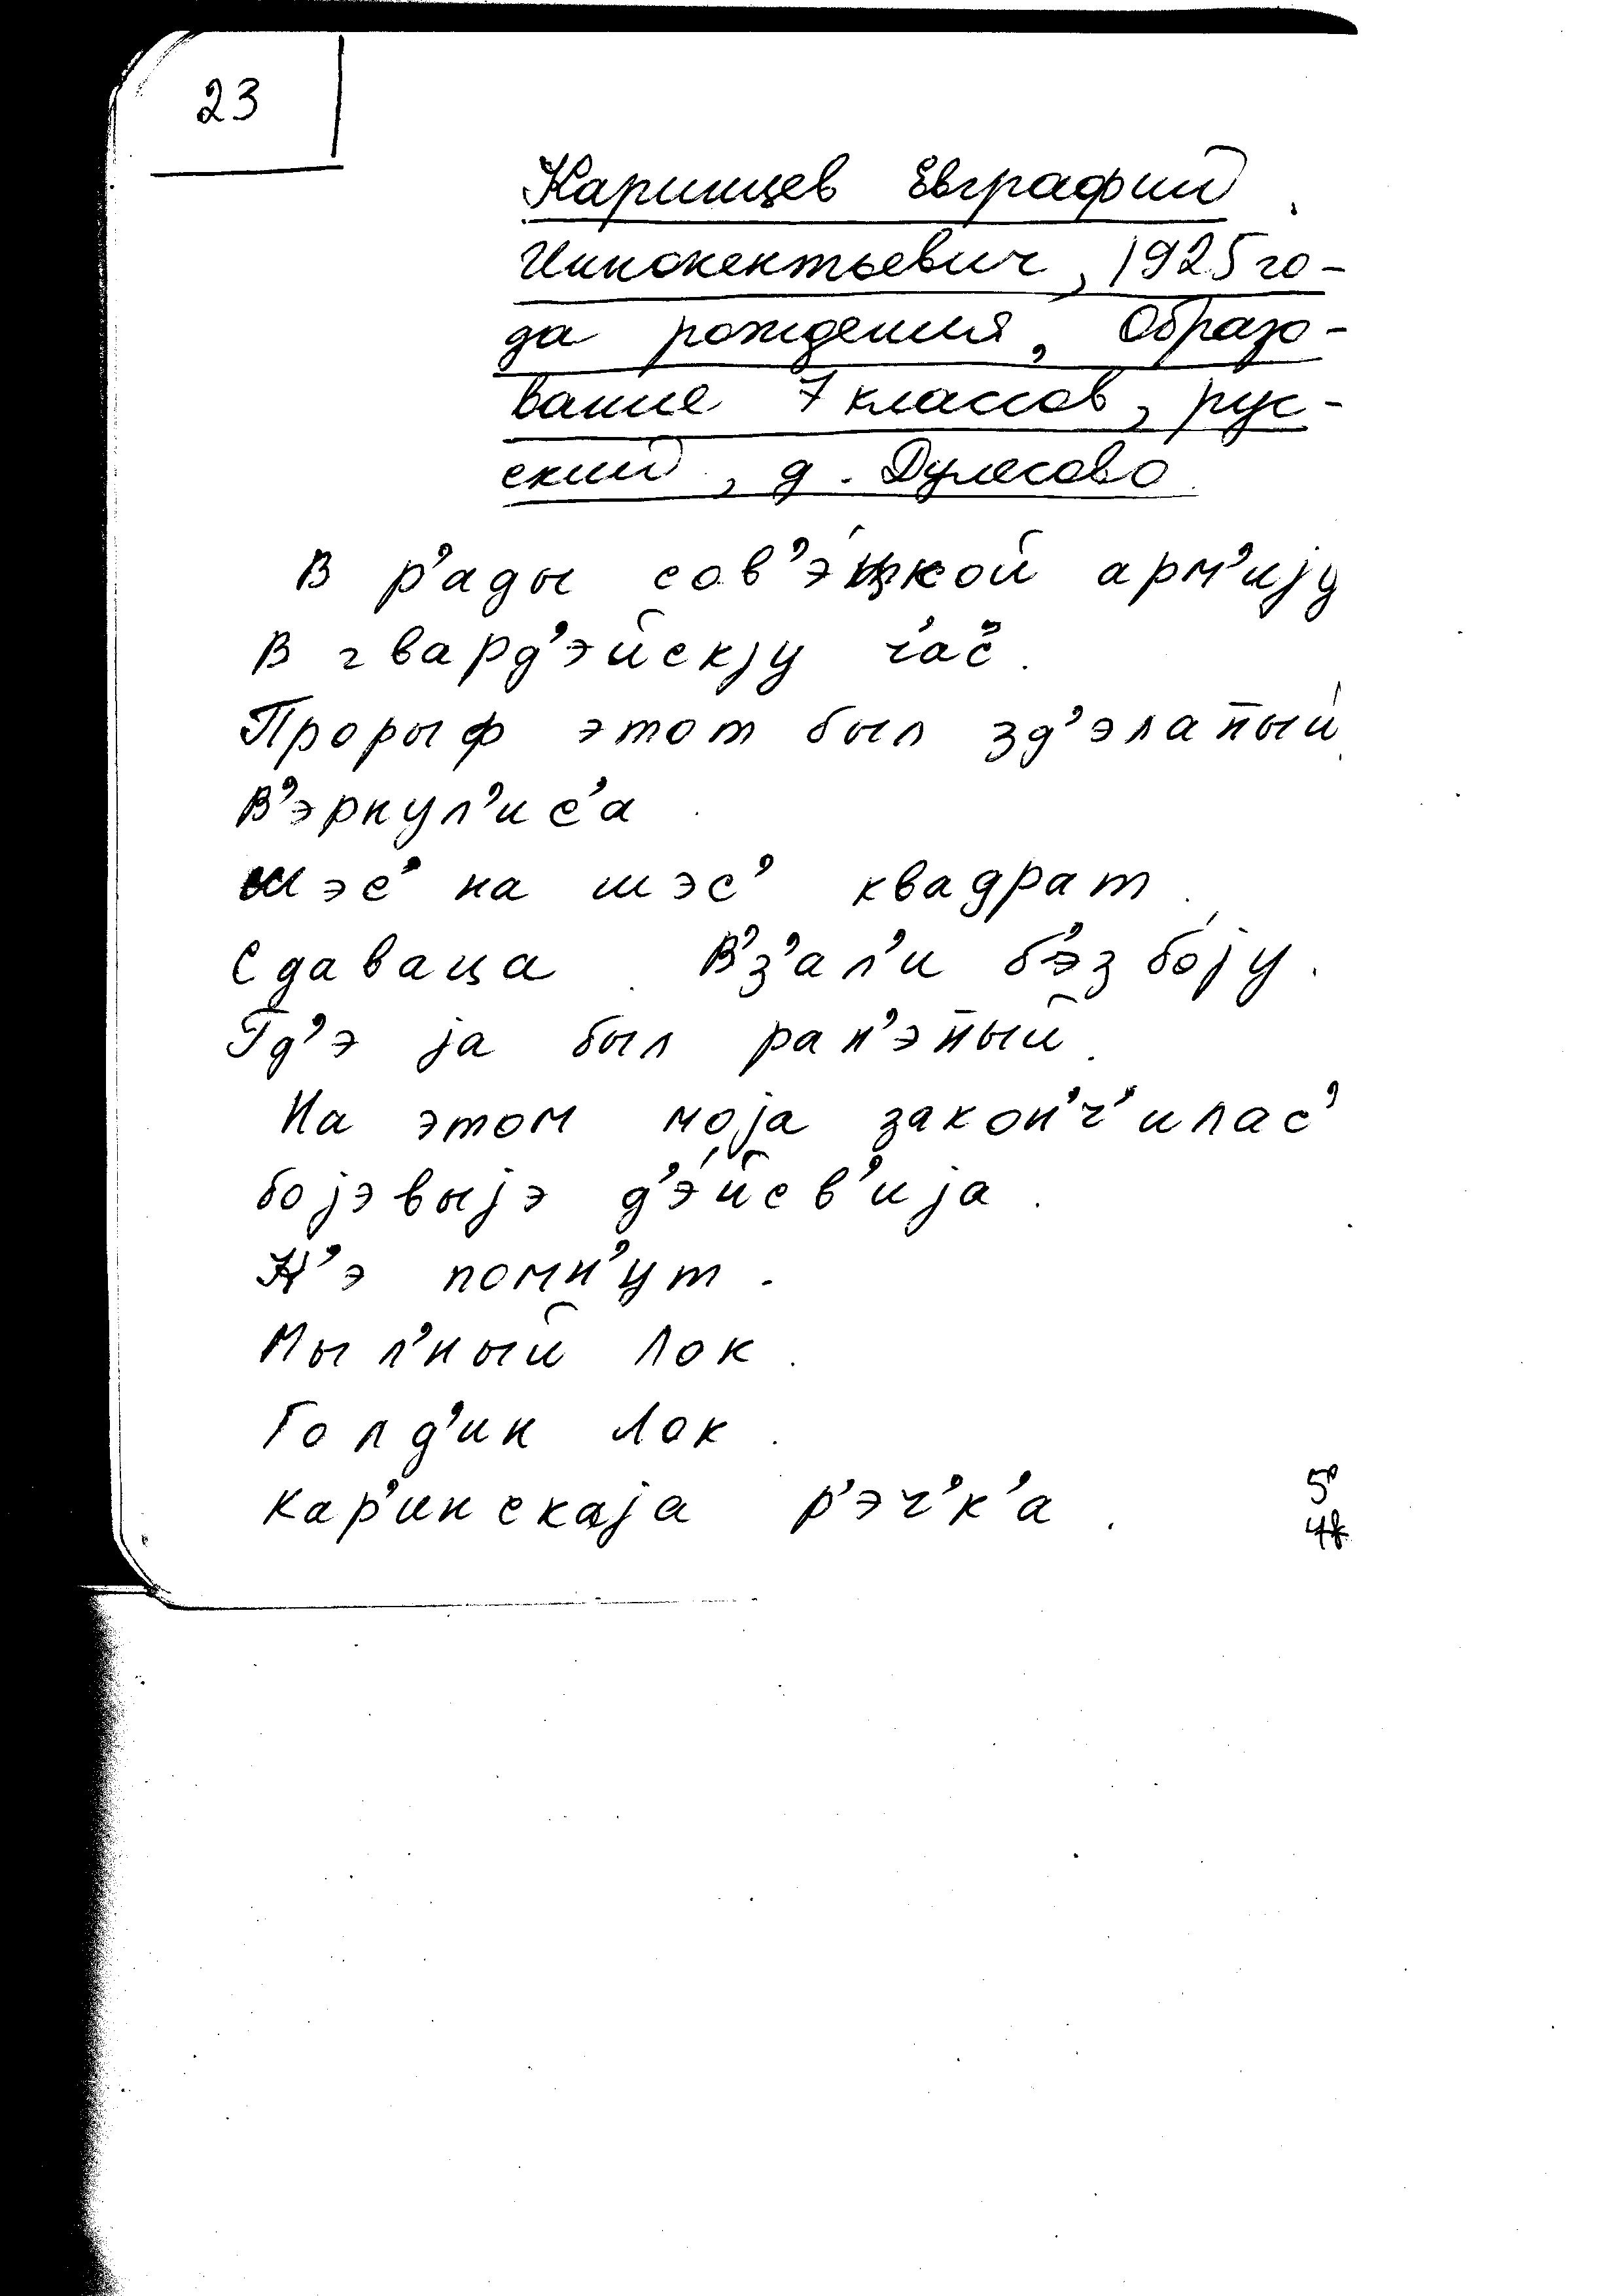 23
Каринцев Евграфий
Иннокентьевич, 1925 го-
да рождения, Образо-
вание 7 классов, рус-
ский, д. Дулесово
В р’ады сов’э́цкой арм’иjу
В гвард’эйскjу ч’ас’.
Прорыф этот был зд’эланый̄.
В’эрнул’ис’а
шэс’ на шэс’ квадрат.
Сдаваца. В’з’ал’и б’эз бо́jу.
Гд’э jа был ран’эн̄ый.
На этом моjа закон’ч’илас’
боjэвыjэ д’э́йсв’иjа.
Н’э помн’ут.
Мыл’ный Лок.
Голд’ин Лок.
Кар’инскаjа р’эч’к’а.